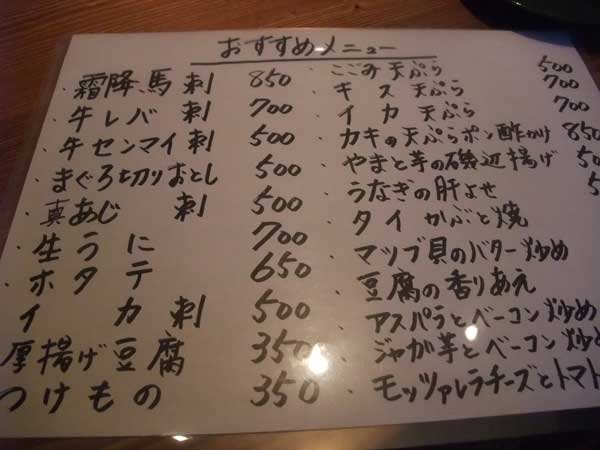 おすすめメニュー
・霜降馬刺 850
・牛レバ刺 700
・牛センマイ刺 500
・まぐろ切りおとし 500
・真あじ刺 500
・生うに 700
・ホタテ 650
イカ刺 500
厚揚げ豆腐 350
つけもの 350
・こごみ天ぷら 500
・キス天ぷら 700
・イカ天ぷら 700
・カキの天ぷらポン酢かけ 850
・やまと芋の磯辺揚げ 50
・うなぎの肝よせ 5
・タイかぶと焼
・マツブ貝のバター炒め
・豆腐の香りあえ
・アスパラとベーコン炒め
・ジャガ芋とベーコン炒め
・モッツァレラチーズとトマト